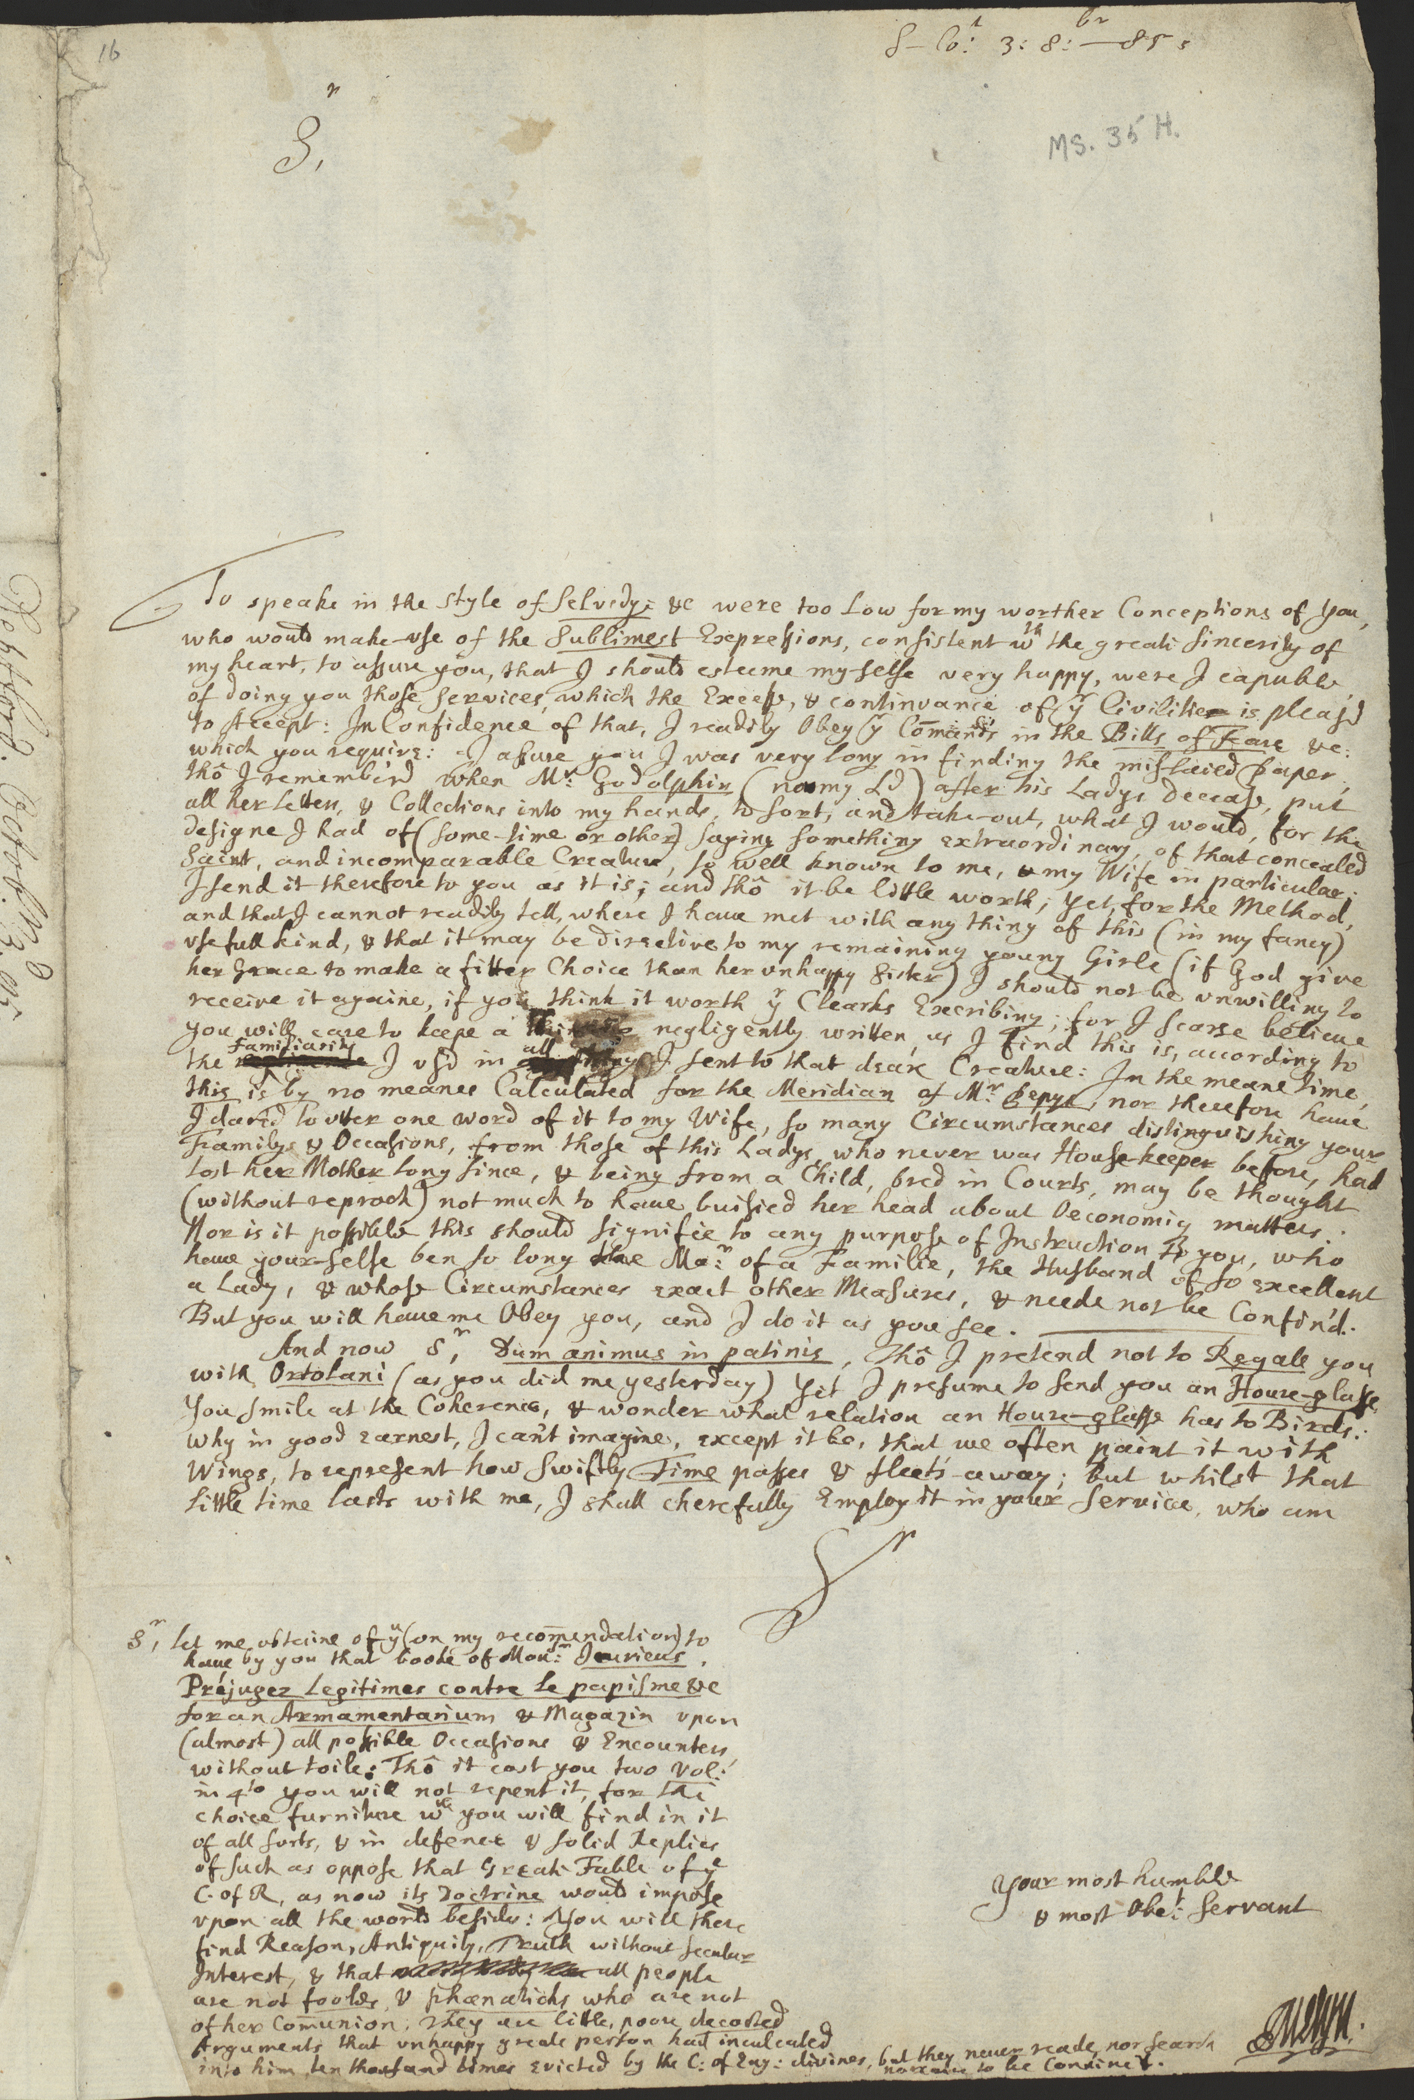 16
S-Co:t 3: 8:br—85:
MS. 35 H.
Sr,
To speake in the style of Selvedg: &c were too Low for my worther Conceptions of you,
who would make-use of the Sublimest Expressions, consistent wth the greate sincerity of
my heart, to assure you, that I should esteeme my-selfe very happy, were I capable
of doing you those services, which the Excesse, & continuance of yr Civilities is pleas'd
to Accept: In Confidence of that, I readily Obey yr Com̄ands in the Bills of Fare &c:
which you require: I assure you I was very long in finding the mislaied paper,
thô I rememberd when Mr: Godolphin (now my Ld) after his Ladys decease, put
all her letters, & Collections into my hands, to sort, and take-out, what I would, for the
designe I had of (some-time or other) saying something extraordinary, of that concealed
Saint, and incomparable Creature, so well known to me, & my Wife in particular:
I send it therefore to you as it is; and thô it be little worth, yet, for the Method,
and that I cannot readily tell, where I have met with any thing of this (in my fancy)
usefull kind, & that it may be directive to my remaining young Girle (if God give
her Grace to make a fitter Choice than her unhappy Sister) I should not be unwilling to
receive it againe, if you think it worth yr Clearks Exscribing; for I scarse believe
you will care to keepe a thing so negligently written, as I find this is, according to
the Familiarity I us'd in all things I sent to that deare Creature: In the meane time,
this is by no meanes Calculated for the Meridian of Mr: Pepys, nor therefore have
I dar'd to utter one word of it to my Wife, so many Circumstances distinguishing your
Familys & Occasions, from those of this Ladys, who never was House-keeper before, had
lost her Mother long since, & being from a Child, bred in Courts, may be thought
(without reproch) not much to have buisied her head about Oeconomiq matters:
Nor is it possible this should signifie to any purpose of Instruction to you, who
have your-selfe ben so long the Mar: of a Familie, the Husband of so excellent
a Lady, & whose Circumstances exact other Measures, & neede not be Confin'd.
But you will have me Obey you, and I do it as you see.
And now Sr, Dum animus in patinis, Thô I pretend not to Regale you
with Ortolani (as you did me yesterday) Yet I presume to send you an Houre-glasse,
You smile at the Coherence, & wonder what relation an Houre-glasse has to Birds:
Why in good earnest, I can't imagine, except it be, that we often paint it with
Wings, to represent how swiftly Time passes & fleets-away; but whilst that
little time lasts with me, I shall cherefully Employ it in your Service, who am
Sr
Sr, let me obtaine of yu (on my recom̄endation) to
have by you that booke of Monsr: Jurieus,
Prejugez Legitimes contre le papisme &c
for an Armamentarium & Magazin upon
(almost) all possible Occasions & Encounters
without toile: Thô it cost you two Vol:
in 4to you will not repent it, for the
choice furniture wch you will find in it
of all sorts, & in defence & solid Replies
of such as oppose that Greate Fable of ye
C. of R, as now its Doctrine would impose
upon all the world beside: You will there
find Reason, Antiquity, Truth without secular
Interest, & that all people
are not fooles, & phænaticks who are not
of her Com̄union. They are little, poore decocted
Arguments that unhappy greate person had inculcated
into him, ten thousand times evicted by the C: of Eng: divines, but they never reade, nor search
nor care to be Convinc'd.
Your most humble
& most Obe:t Servant
JEvelyn.